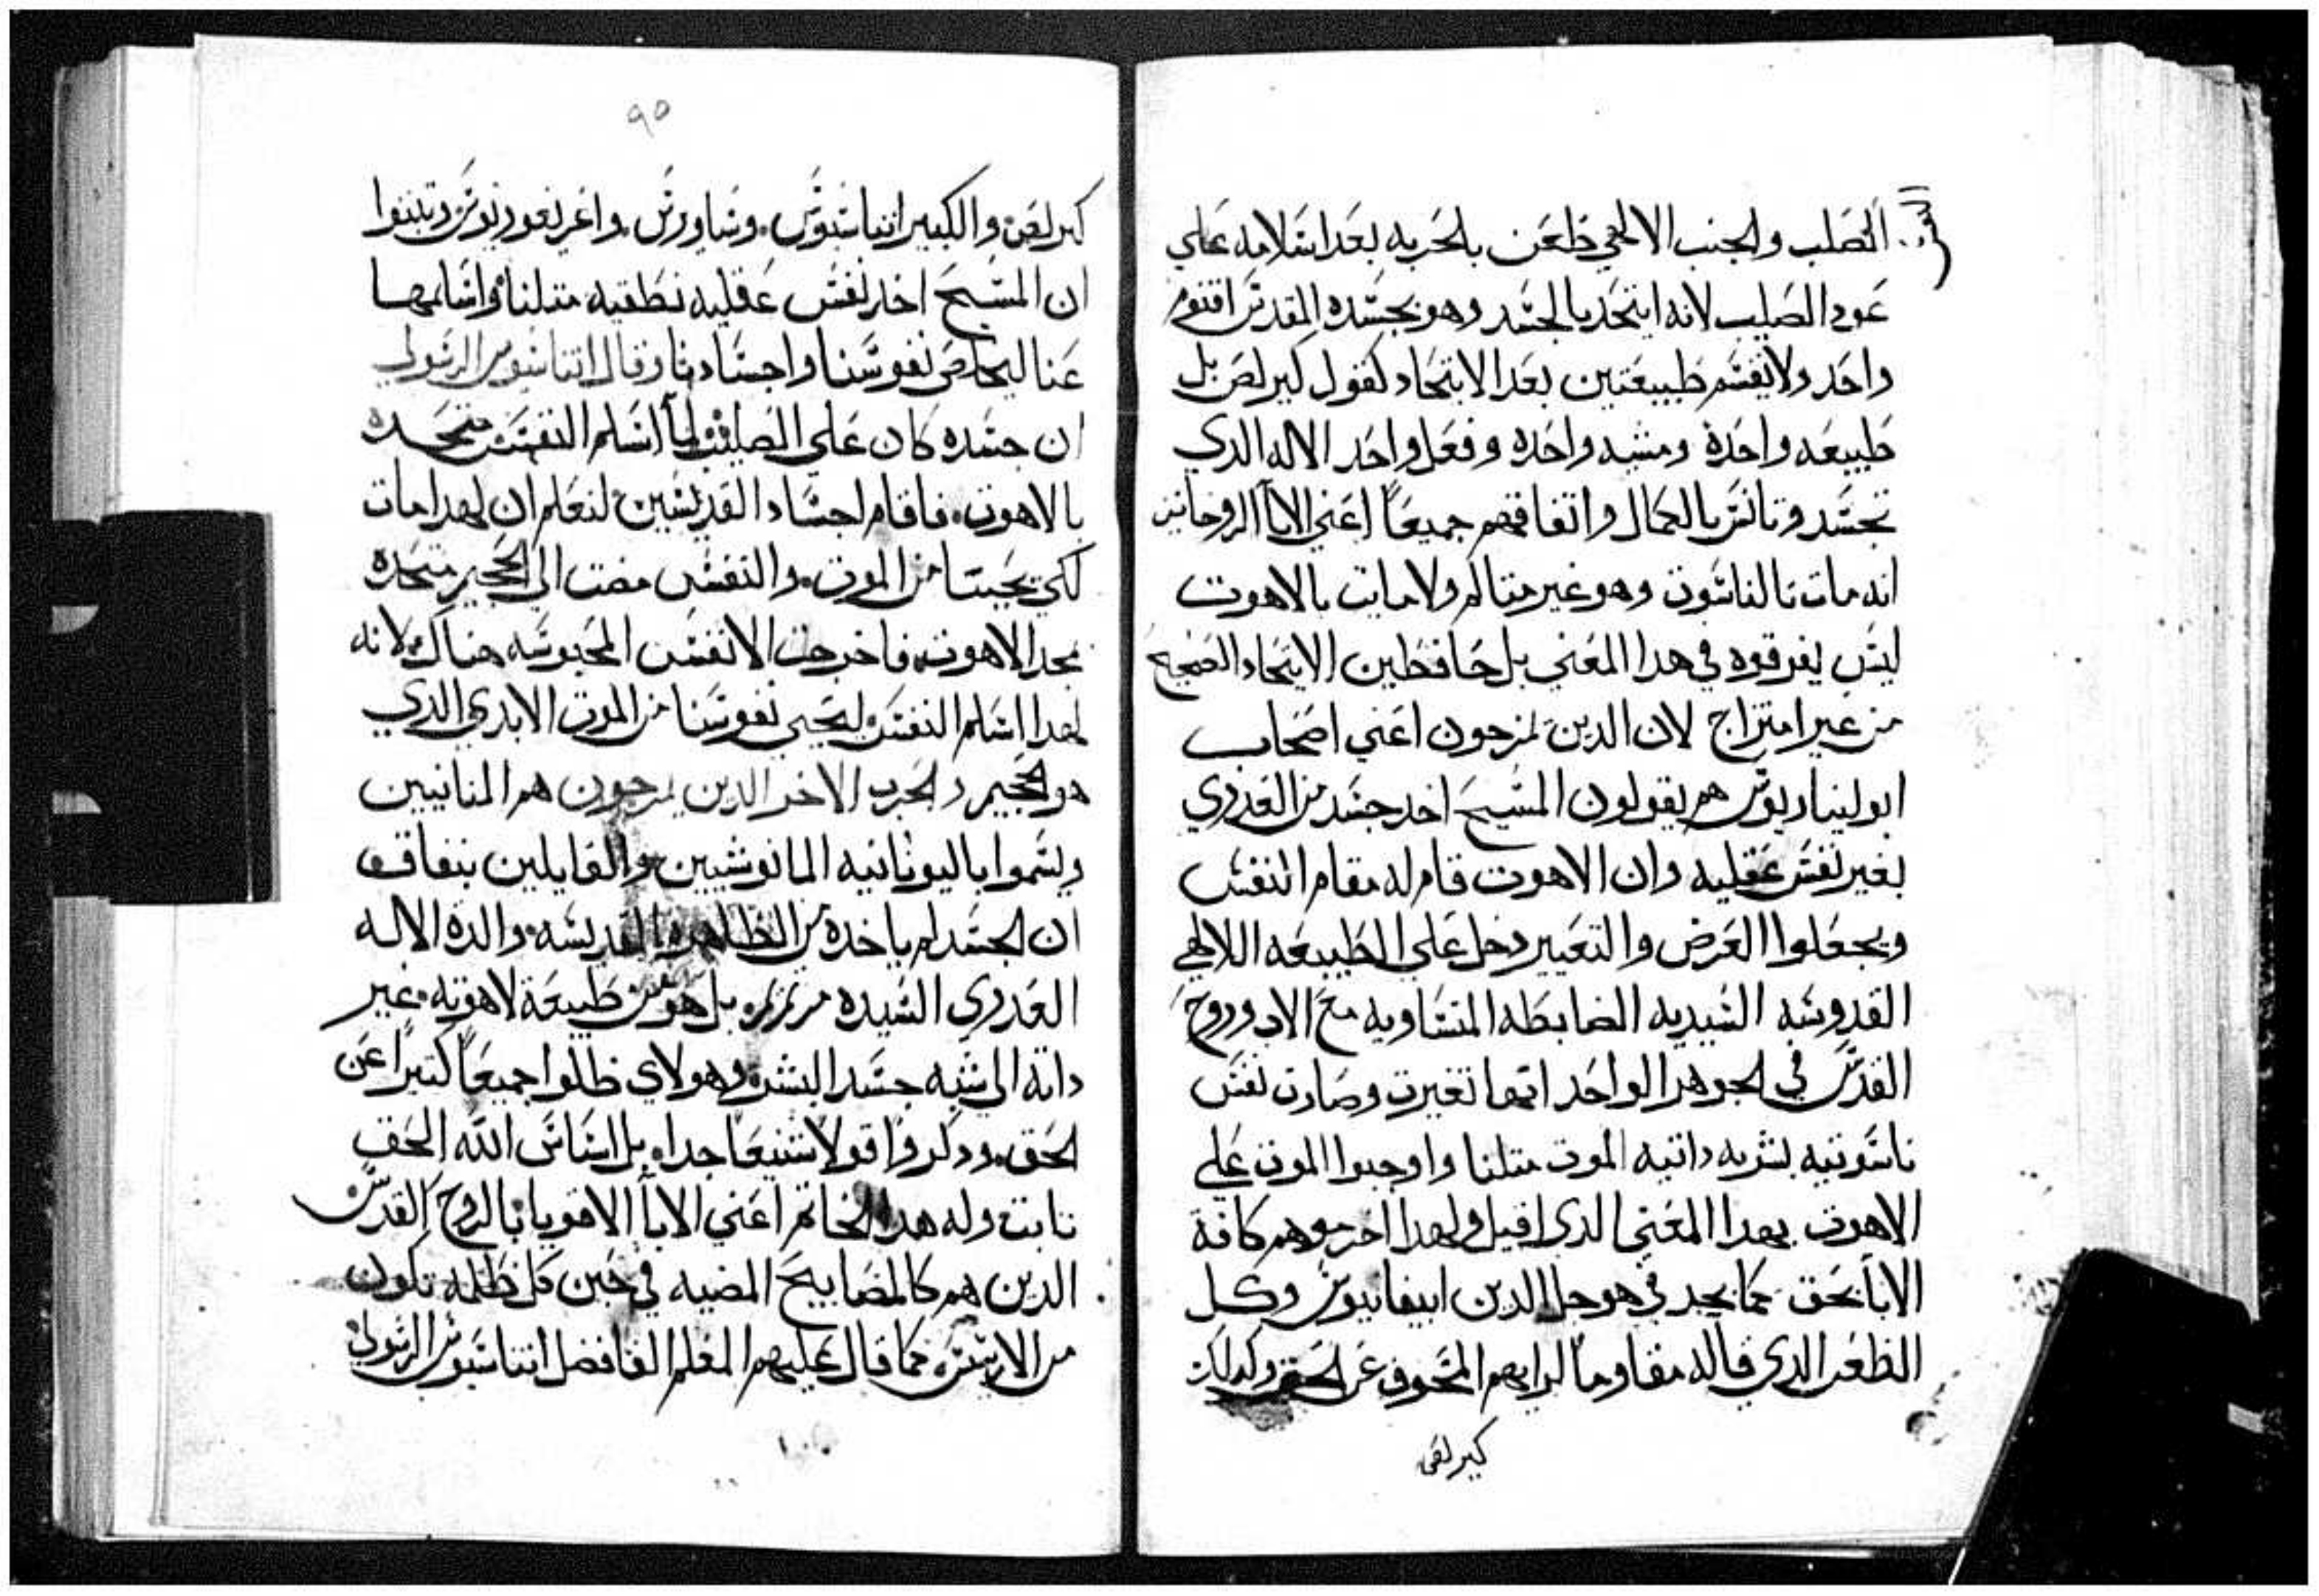 الصلب والجنب الالهي طعن بالحربه بعد اسلامه علي
عود الصليب لانه ايتحد بالجسد وهو بجسده المقدس اقنوم
واحد ولا يقسم طبيعتين بعد الايتحاد كقول كيرلص بل
طبيعه واحدة ومشيه واحده وفعل واحد الاله الدي
تجسد وتانس بالكمال واتفاقهم جميعاً اعني الابآ الروحانيين
انه مات بالناسوت وهو غير متالم ولا مايت بالاهوت
ليس يفرقوه في هدا المعني بل حافظين الايتحاد الصحيح
من غير امتزاج لان الدين يمزجون اعني اصحاب
ابوليناريوس هم يقولون المسيح اخد جسد من العدري
بغير نفس عقليه وان الاهوت قام له مقام النفس
ويجعلوا العرض والتغيير دخل علي الطبيعه اللالهيه
القدوسه السيديه الضابطه المتساويه مع الاب وروح
القدس في الجوهر الواحد انها تغيرت وصارت نفس
ناسوتيه بشريه داتيه الموت متلنا واوجبوا الموت علي
الاهوت بهدا المعني الدي اقيل ولهدا احرموهم كافة
الابآ بحق كما يجد في هوجل الدين ابيفانيوس وكل
الظعن الدي قاله مقاوماً لرايهم المنحرف عن الحق وكدلك
كيرلص
٩٥
كيرلص والكبير اتناسيوس وساورس واغريغوريوس وتبتوا
ان المسيح اخد نفس عقليه نطقيه متلنا واسلمها
عنا ليخلص نفوسنا واجسادنا وقال اتناسيوس الرسولي
ان جسده كان علي الصليب لمآ اسلم النفس متحده
بالاهوت فاقام اجساد القديسين لنعلم ان لهدا مات
لكي يحيينا من الموت والنفس مضت الى الجحيم متحده
بمجد الاهوت فاخرجت الانفس المحبوسه هناك لانه
لهدا اسلم النفس ليحيي نفوسنا من الموت الابدي الدي
هو الجحيم والحزب الاخر الدين يمزجون هم المنانيين
ويسموا باليونانيه المانوشيين والقايلين بنفاق
ان الجسد لم ياخده من الطاهره القديسه والدة الاله
العدري السيده مرتمريم بل هو من طبيعة لاهوته غير
داته الى شبه جسد البشر وهولاي ظلوا جميعاً كتيراً عن
الحق ودكروا قولاً شنيعاً جدا بل اساس الله الحق
تابت وله هدا الخاتم اعني الابآ الاقويا بالروح القدس
الدين هم كالمصابيح المضيه في حين كل ظلمه تكون
من الارسس كما قال عليهم المعلم الفاضل اتناسيوس الرسولي